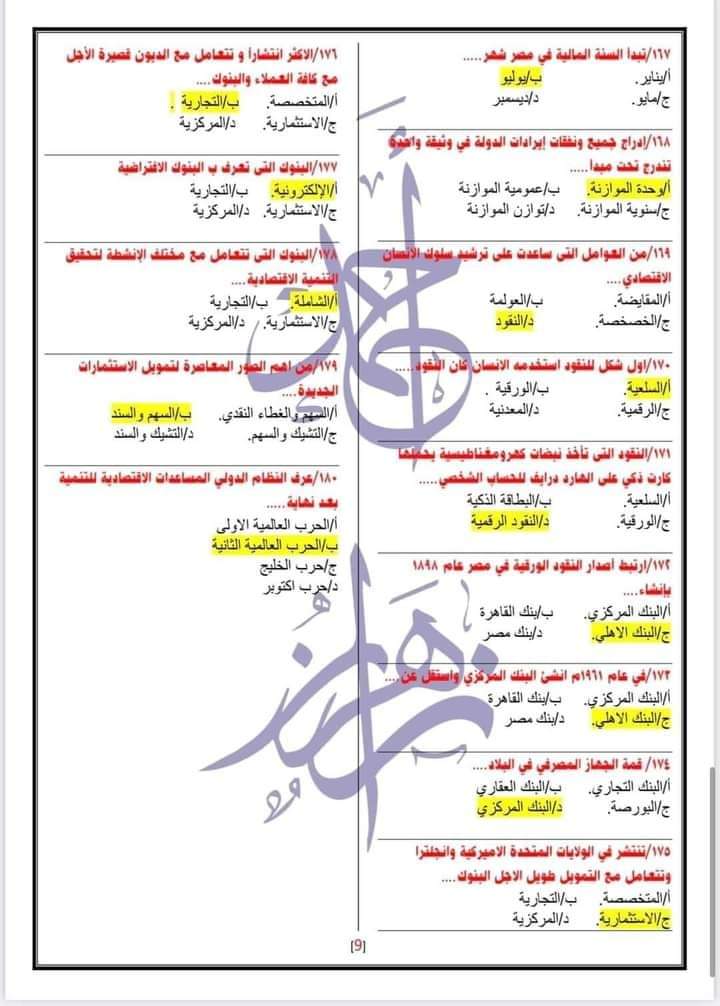 ١٦٧/تبدأ السنة المالية في مصر شهر.....
أ/يناير. ب/يوليو
ج/مايو. د/ديسمبر
١٦٨/إدراج جميع ونفقات إيرادات الدولة في وثيقة واحدة
تندرج تحت مبدأ.....
أ/وحدة الموازنة. ب/عمومية الموازنة
ج/سنوية الموازنة. د/توازن الموازنة
١٦٩/من العوامل التى ساعدت على ترشيد سلوك الانسان
الاقتصادي....
أ/المقايضة. ب/العولمة
ج/الخصخصة. د/النقود
١٧٠/اول شكل للنقود استخدمه الانسان كان النقود.....
أ/السلعية. ب/الورقية .
ج/الرقمية. د/المعدنية
١٧١/النقود التى تأخذ نبضات كهرومغناطيسية يحملها
كارت ذكي على الهارد درايف للحساب الشخصي.....
أ/السلعية. ب/البطاقة الذكية
ج/الورقية. د/النقود الرقمية
١٧٢/ارتبط أصدار النقود الورقية في مصر عام ١٨٩٨
بإنشاء....
أ/البنك المركزي. ب/بنك القاهرة
ج/البنك الاهلي. د/بنك مصر
١٧٣/في عام ١٩٦١م انشئ البنك المركزي واستقل عن....
أ/البنك المركزي. ب/بنك القاهرة
ج/البنك الاهلي. د/بنك مصر
١٧٤/ قمة الجهاز المصرفي في البلاد....
أ/البنك التجاري. ب/البنك العقاري
ج/البورصة. د/البنك المركزي
١٧٥/تنتشر في الولايات المتحدة الاميركية وانجلترا
وتتعامل مع التمويل طويل الاجل البنوك....
أ/المتخصصة. ب/التجارية
ج/الاستثمارية. د/المركزية
١٧٦/الاكثر انتشاراً و تتعامل مع الديون قصيرة الأجل
مع كافة العملاء والبنوك....
أ/المتخصصة. ب/التجارية .
ج/الاستثمارية. د/المركزية
١٧٧/البنوك التى تعرف ب البنوك الافتراضية
أ/الإلكترونية. ب/التجارية
ج/الاستثمارية. د/المركزية
١٧٨/البنوك التى تتعامل مع مختلف الإنشطة لتحقيق
التنمية الاقتصادية....
أ/الشاملة. ب/التجارية
ج/الاستثمارية. د/المركزية
١٧٩/من اهم الصور المعاصرة لتمويل الاستثمارات
الجديدة....
أ/السهم والغطاء النقدي. ب/السهم والسند
ج/التشيك والسهم. د/التشيك والسند
١٨٠/عرف النظام الدولي المساعدات الاقتصادية للتنمية
بعد نهاية.....
أ/الحرب العالمية الاولى
ب/الحرب العالمية الثانية
ج/حرب الخليج
د/حرب اكتوبر
أحمد
[9]